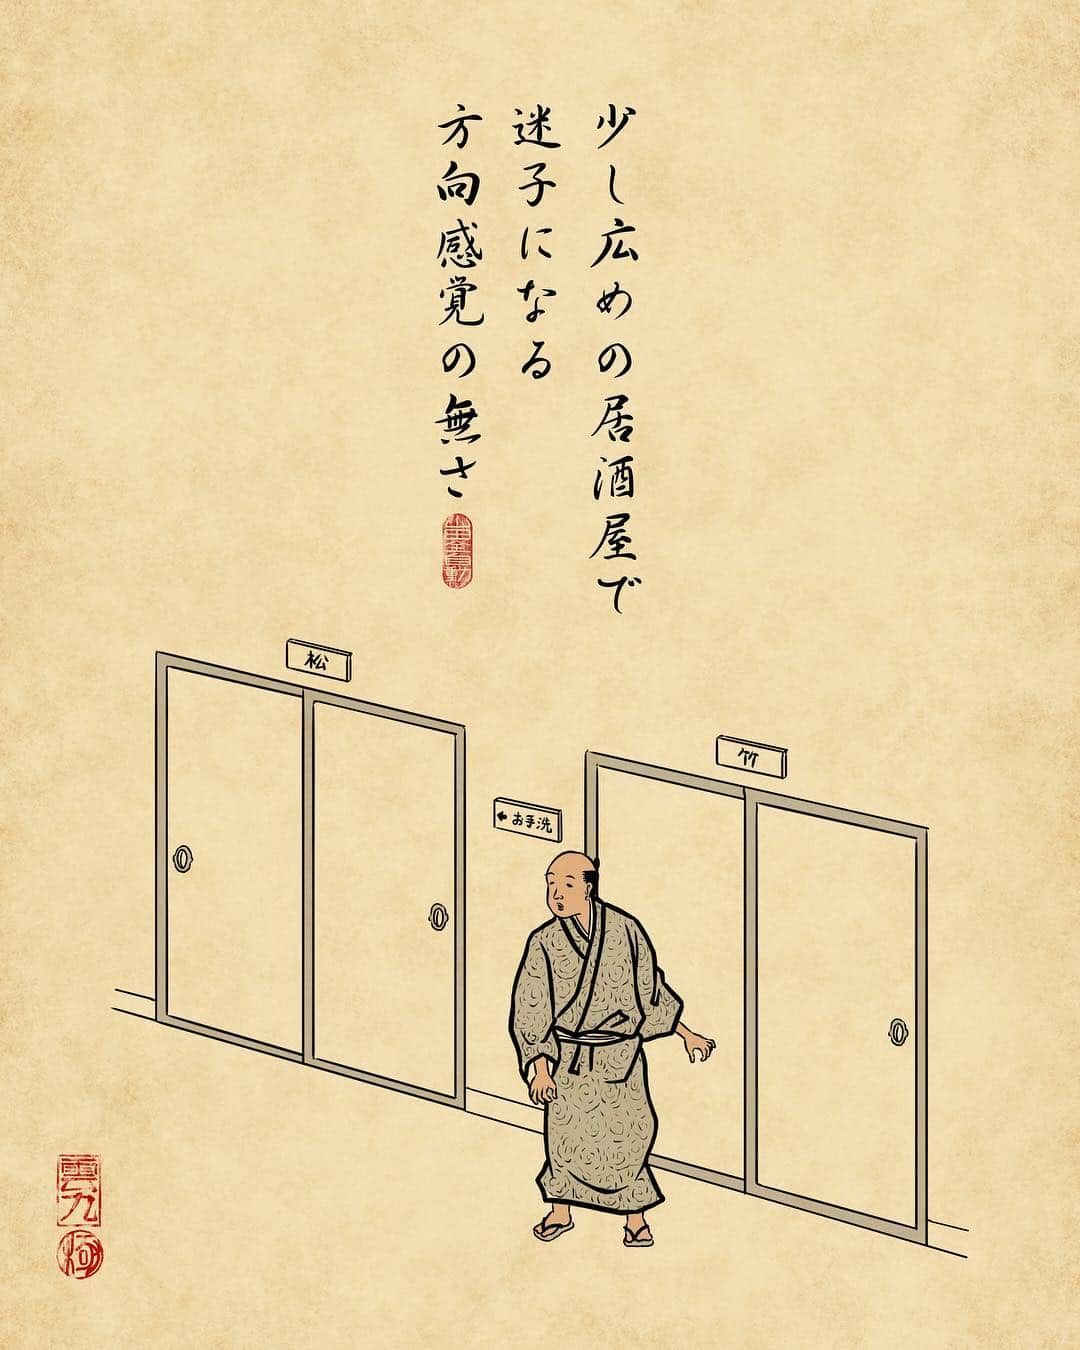 少し広めの居酒屋で
迷子になる
方向感覚の無さ
松
竹
←お手洗
雲九
極